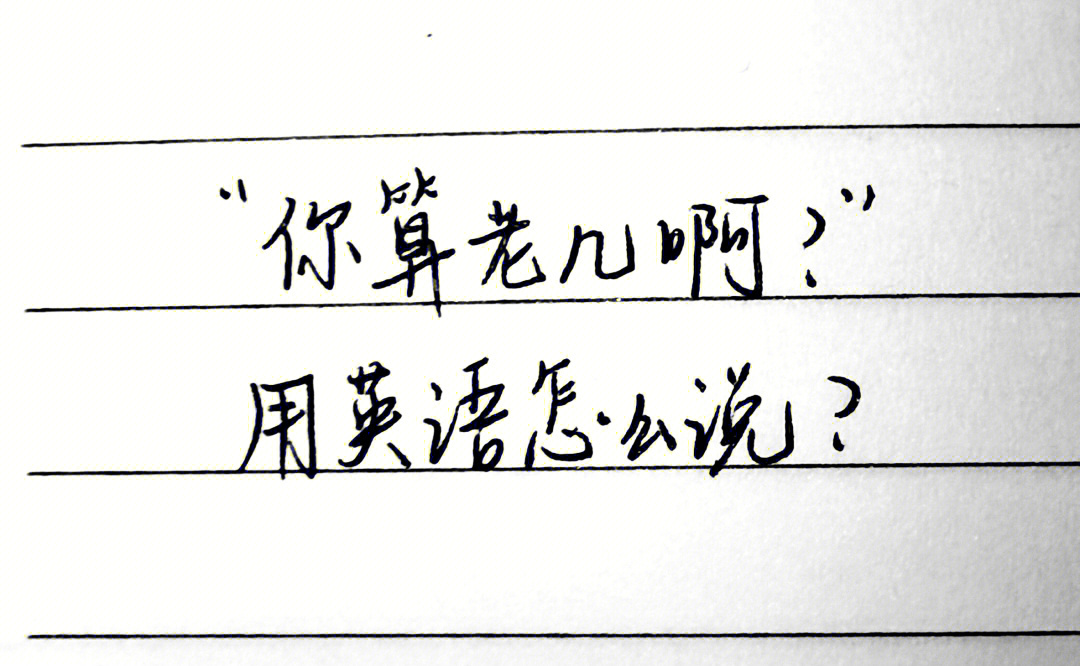 “你算老几啊？”
用英语怎么说？